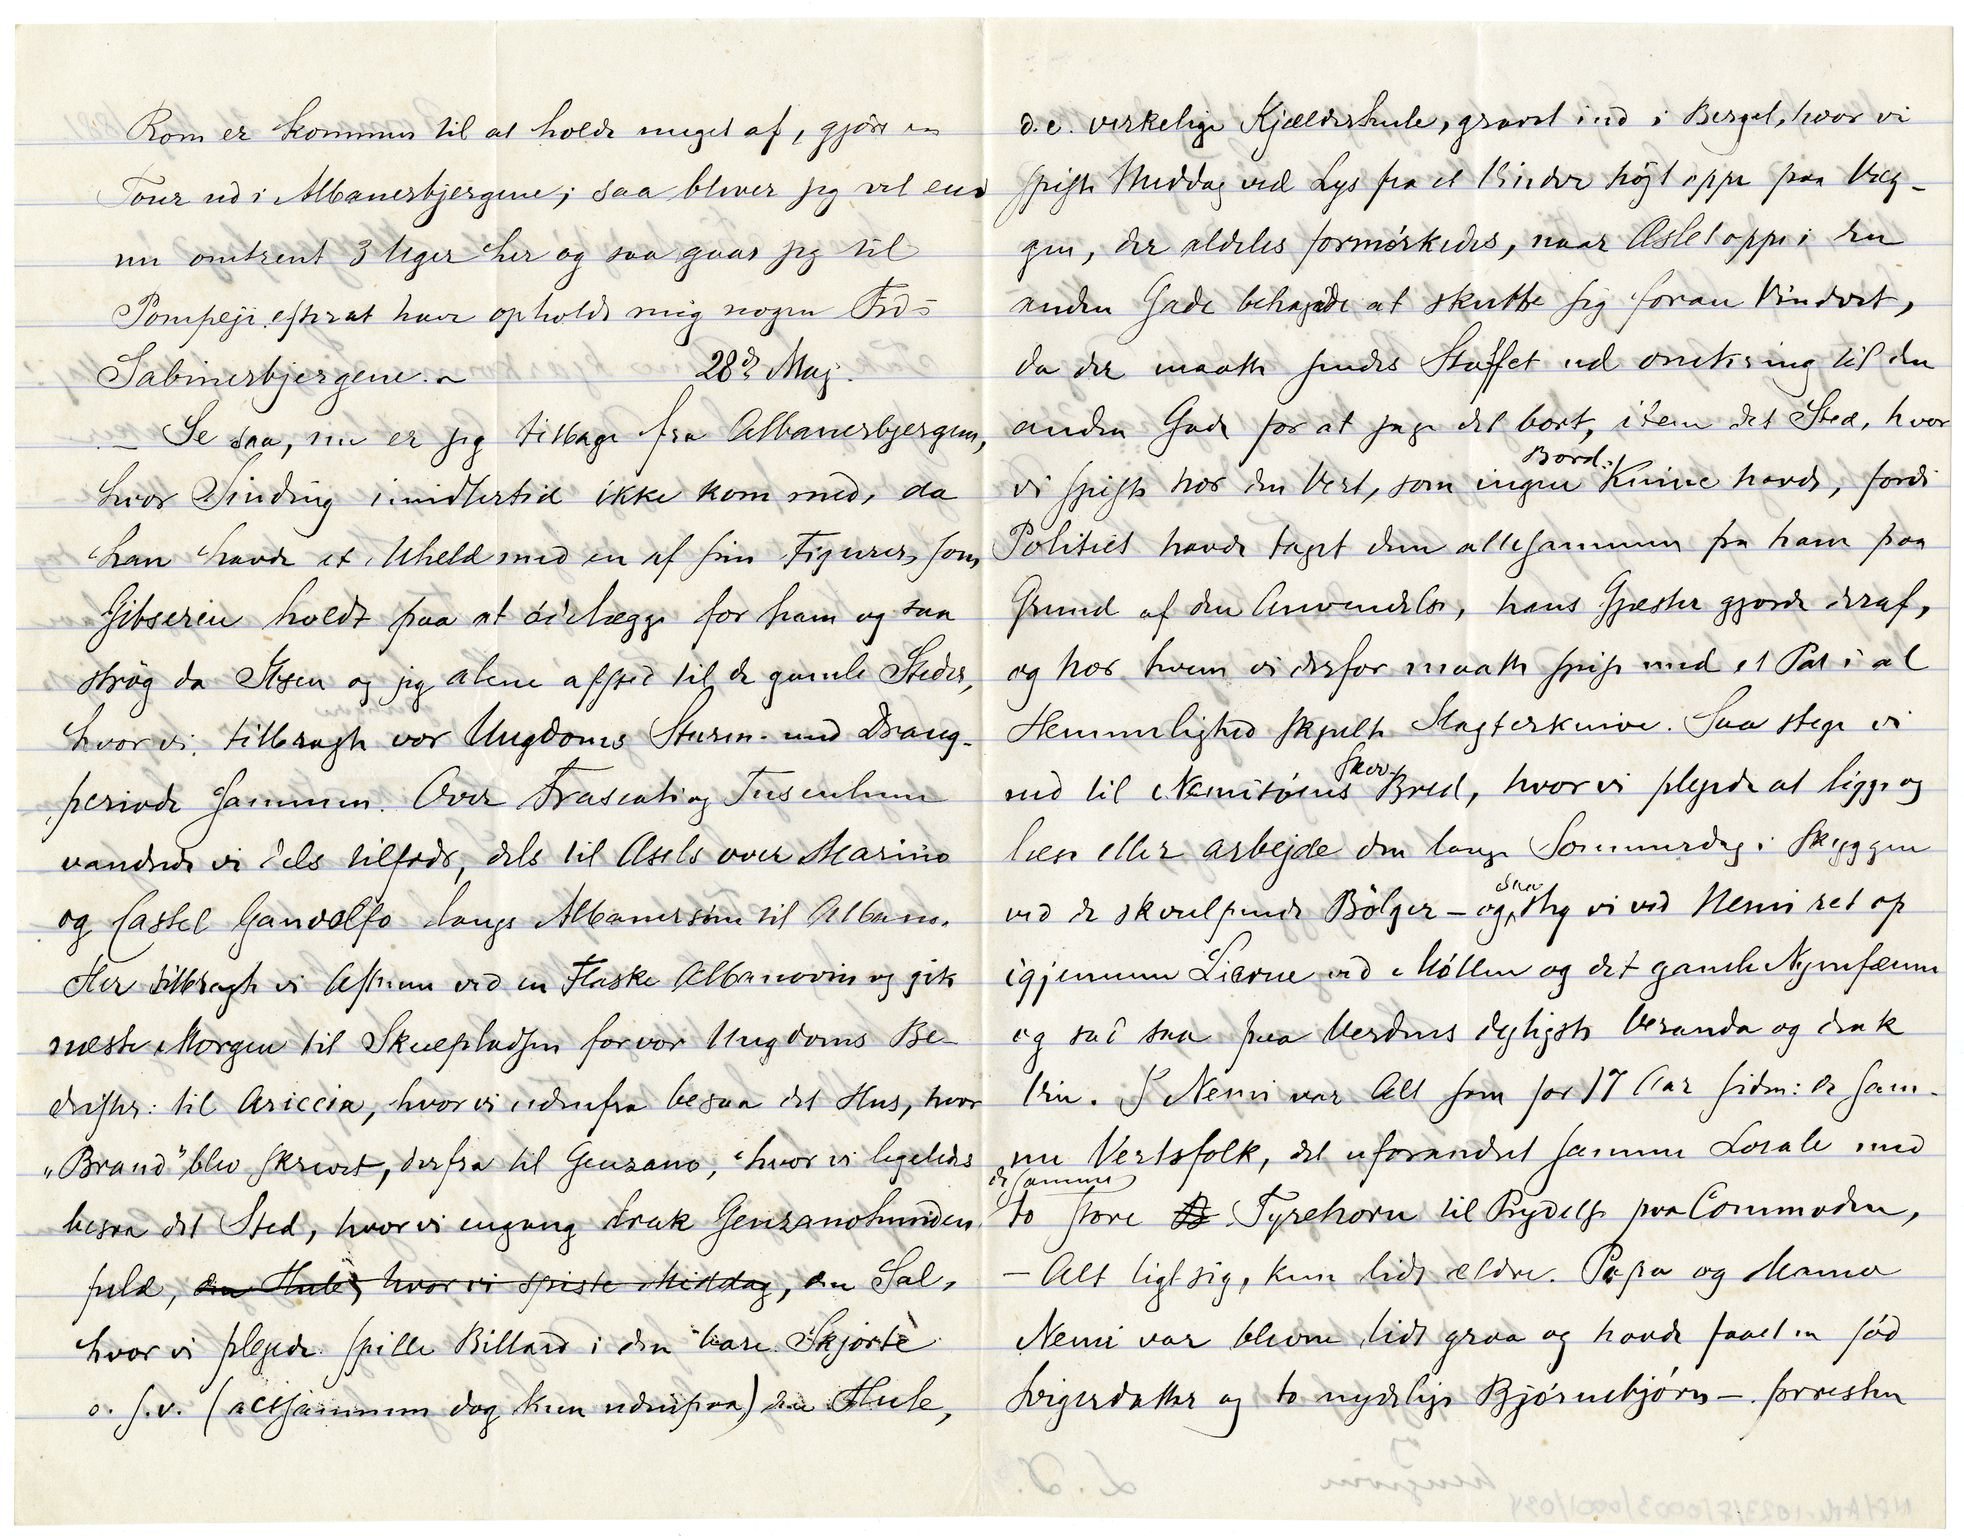 Rom er kommen til at holde meget af, gjøre en
Tour ud i Albanerbjergene; saa bliver jeg vel end
nu omtrent 3 Uger her og saa gaar jeg til
Pompeji efterat have opholdt mig nogen Tid i
Sabinerbjergene. –
28de Maj.
– Se saa, nu er jeg tilbage fra Albanerbjergene,
hvor Sinding imidlertid ikke kom med, da
han havde et Uheld med en af sine Figurer, som
Gibseren holdt paa at ødelægge for ham og saa
strøg da Ibsen og jeg alene afsted til de gamle Steder,
hvor vi tilbragte vor Ungdoms Sturm- und Drang-
periode sammen. Over Frascati og Tusculum
vandrede vi dels tilfods, dels til Æsels over Marino
og Castel Gandolfo langs Albanersøen til Albano.
Her tilbragte vi Aftenen ved en Flaske Albanovin og gik
næste Morgen til Skuepladsen for vor Ungdoms Be-
drifter: til Ariccia, hvor vi udenfra besaa det Hus, hvor
„Brand" blev skrevet, derfra til Genzano, hvor vi ligeledes
besaa det Sted, hvor vi engang drak Genzanohunden
fuld, den Hule, hvor vi spiste Middag, den Sal,
hvor vi plejede spille Billard i den bare Skjorte
o. s. v. (altsammen dog kun udenfra) den Hule,
d. e. virkelige Kjælderhule, gravet ind i Berget, hvor vi
spiste Middag ved Lys fra et Vindve højt oppe paa Væg-
gen, der aldeles formørkedes, naar Æslet oppe i den
anden Gade behagede at skubbe sig foran Vindvet,
da der maatte sendes Staffet ud omkring til den
anden Gade for at jage det bort, item det Sted, hvor
vi spiste hos den Vert, som ingen Bord-Knive havde, fordi
Politiet havde taget dem allesammen fra ham paa
Grund af den Anvendelse, hans Gjæster gjorde deraf,
og hos hvem vi derfor maatte spise med et Par i al
Hemmelighed skjulte Slagterknive. Saa stege vi
ned til Nemisøens skov Bred, hvor vi plejede at ligge og
læse eller arbejde den lange Sommerdag i Skyggen
ved de skvulpende Bølger – og steg vi ved Nemi ret op
igjennem Lierne ved Møllen og det gamle Nymfæum
og sad saa paa Verdens dejligste Veranda og drak
Vin. I Nemi var Alt som for 17 Aar siden: de sam-
me Vertsfolk, det uforandret samme Locale med
de samme
to store Tyrehorn til Prydelse paa Commoden,
– Alt ligt sig, kun lidt ældre. Papa og Mama
Nemi var blevne lidt graa og havde faaet en sød
Svigerdatter og to nydelige Bjørnebjørn – forresten